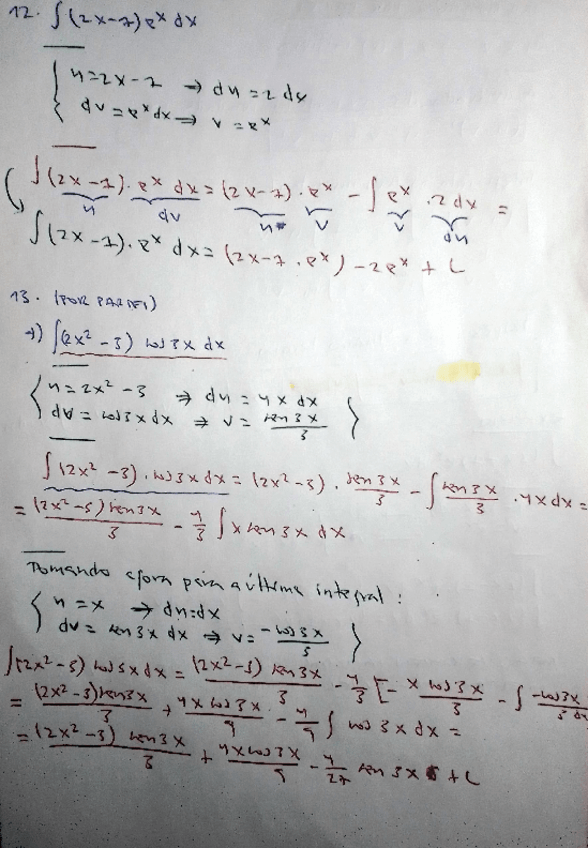 12. ∫(2x-7)e^x dx
{ u=2x-7 → du=2dx
dv=e^x dx ⇒ v=e^x }
∫(2x-7).e^x dx = (2x-7).e^x - ∫e^x .2dx =
u dv u v v du
∫(2x-7).e^x dx = (2x-7.e^x) - 2e^x + C
13. (POR PARTES)
→) ∫(2x²-3) cos3x dx
{ u=2x²-3 ⇒ du=4xdx
dv=cos3xdx ⇒ v=sen3x/3 }
∫(2x²-3).cos3xdx = (2x²-3).sen3x/3 - ∫sen3x/3 .4xdx =
= (2x²-3)sen3x/3 - 4/3 ∫x sen3x dx
Tomando agora para a última integral:
{ u=x → du=dx
dv=sen3x dx ⇒ v=-cos3x/3 }
∫(2x²-3)cos3xdx = (2x²-3)sen3x/3 - 4/3 [-xcos3x/3 - ∫-cos3x/3 dx
= (2x²-3)sen3x/3 + 4xcos3x/9 - 4/9 ∫cos3xdx =
= (2x²-3)sen3x/3 + 4xcos3x/9 - 4/27 sen3x + C